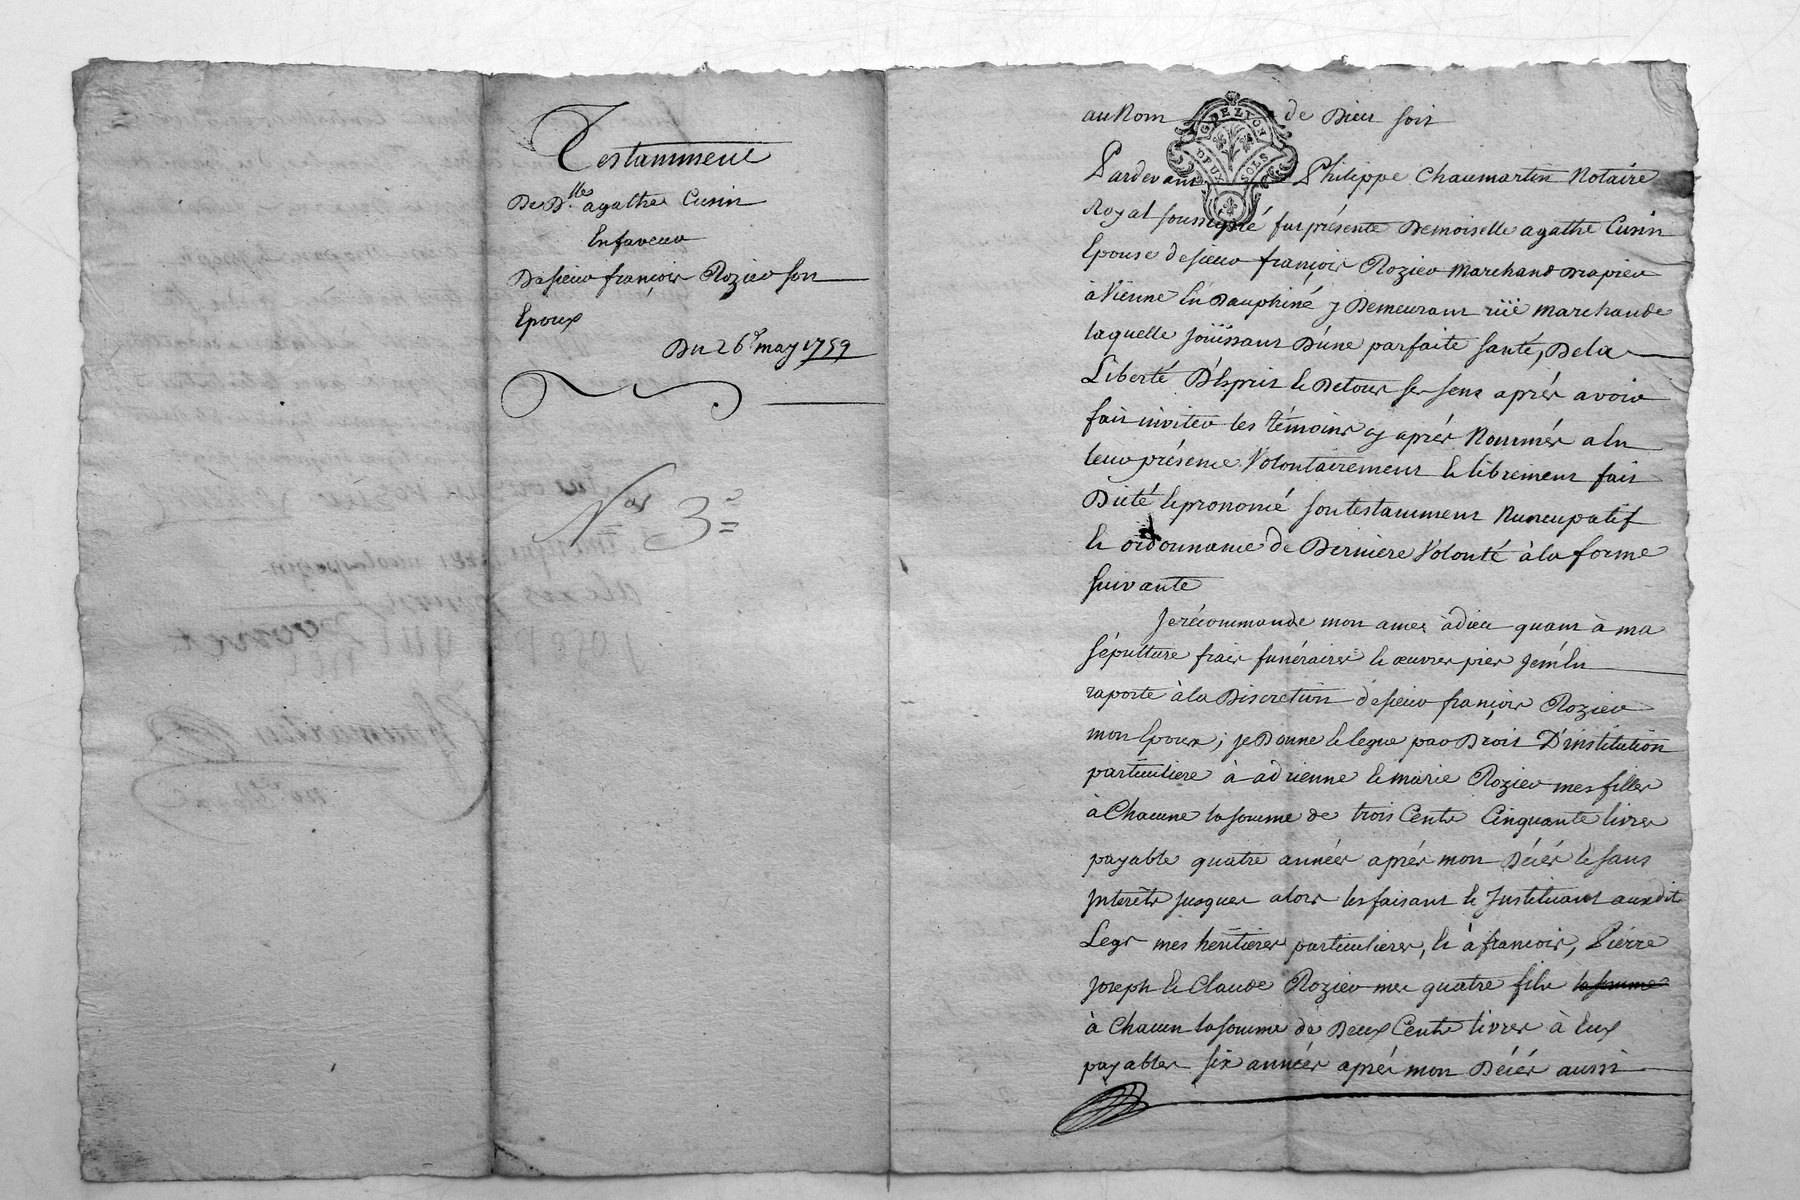 Testamment
De Dlle agathe Cusin
Enfaveur
De sieur françois Rozier son
Epoux
Du 26e may 1759
Nos 3e
au Nom de Dieu soit
G. DE LYON
DEUX SOLS
Pardevant Philippe Chaumartin Notaire
Royal soussigné fut présente Demoiselle agathe Cusin
Epouse de sieur françois Rozier Marchand Drapier
à Vienne En Dauphiné y Demeurant rüë marchande
laquelle joüissant D'une parfaite santé, De la
Liberté D'Esprit & De tous ses sens après avoir
fait inviter les témoins cy après Nommés a En
leur présence Volontairement & librement fait
Dicté & prononcé son testamment Nuncupatif
& ordonnance de Derniere Volonté à la forme
suivante
Je récommande mon ame à dieu quant à ma
sépulture frais funéraires & œuvres pies Jem'En
raporte à la Discretion de sieur françois Rozier
mon Epoux; je Donne & legue par Droit D'institution
particuliere à adrienne & marie Rozier mes filles
à Chacune la somme de trois Cents Cinquante livres
payable quatre années après mon Décés & sans
Interêts jusques alors les faisant & Instituant auxdits
Legs mes héritieres particulieres, & à francois, Pierre
Joseph & Claude Rozier mes quatre fils la somme
à Chacun la somme de Deux Cents livres à Eux
payables six années après mon Décés aussi